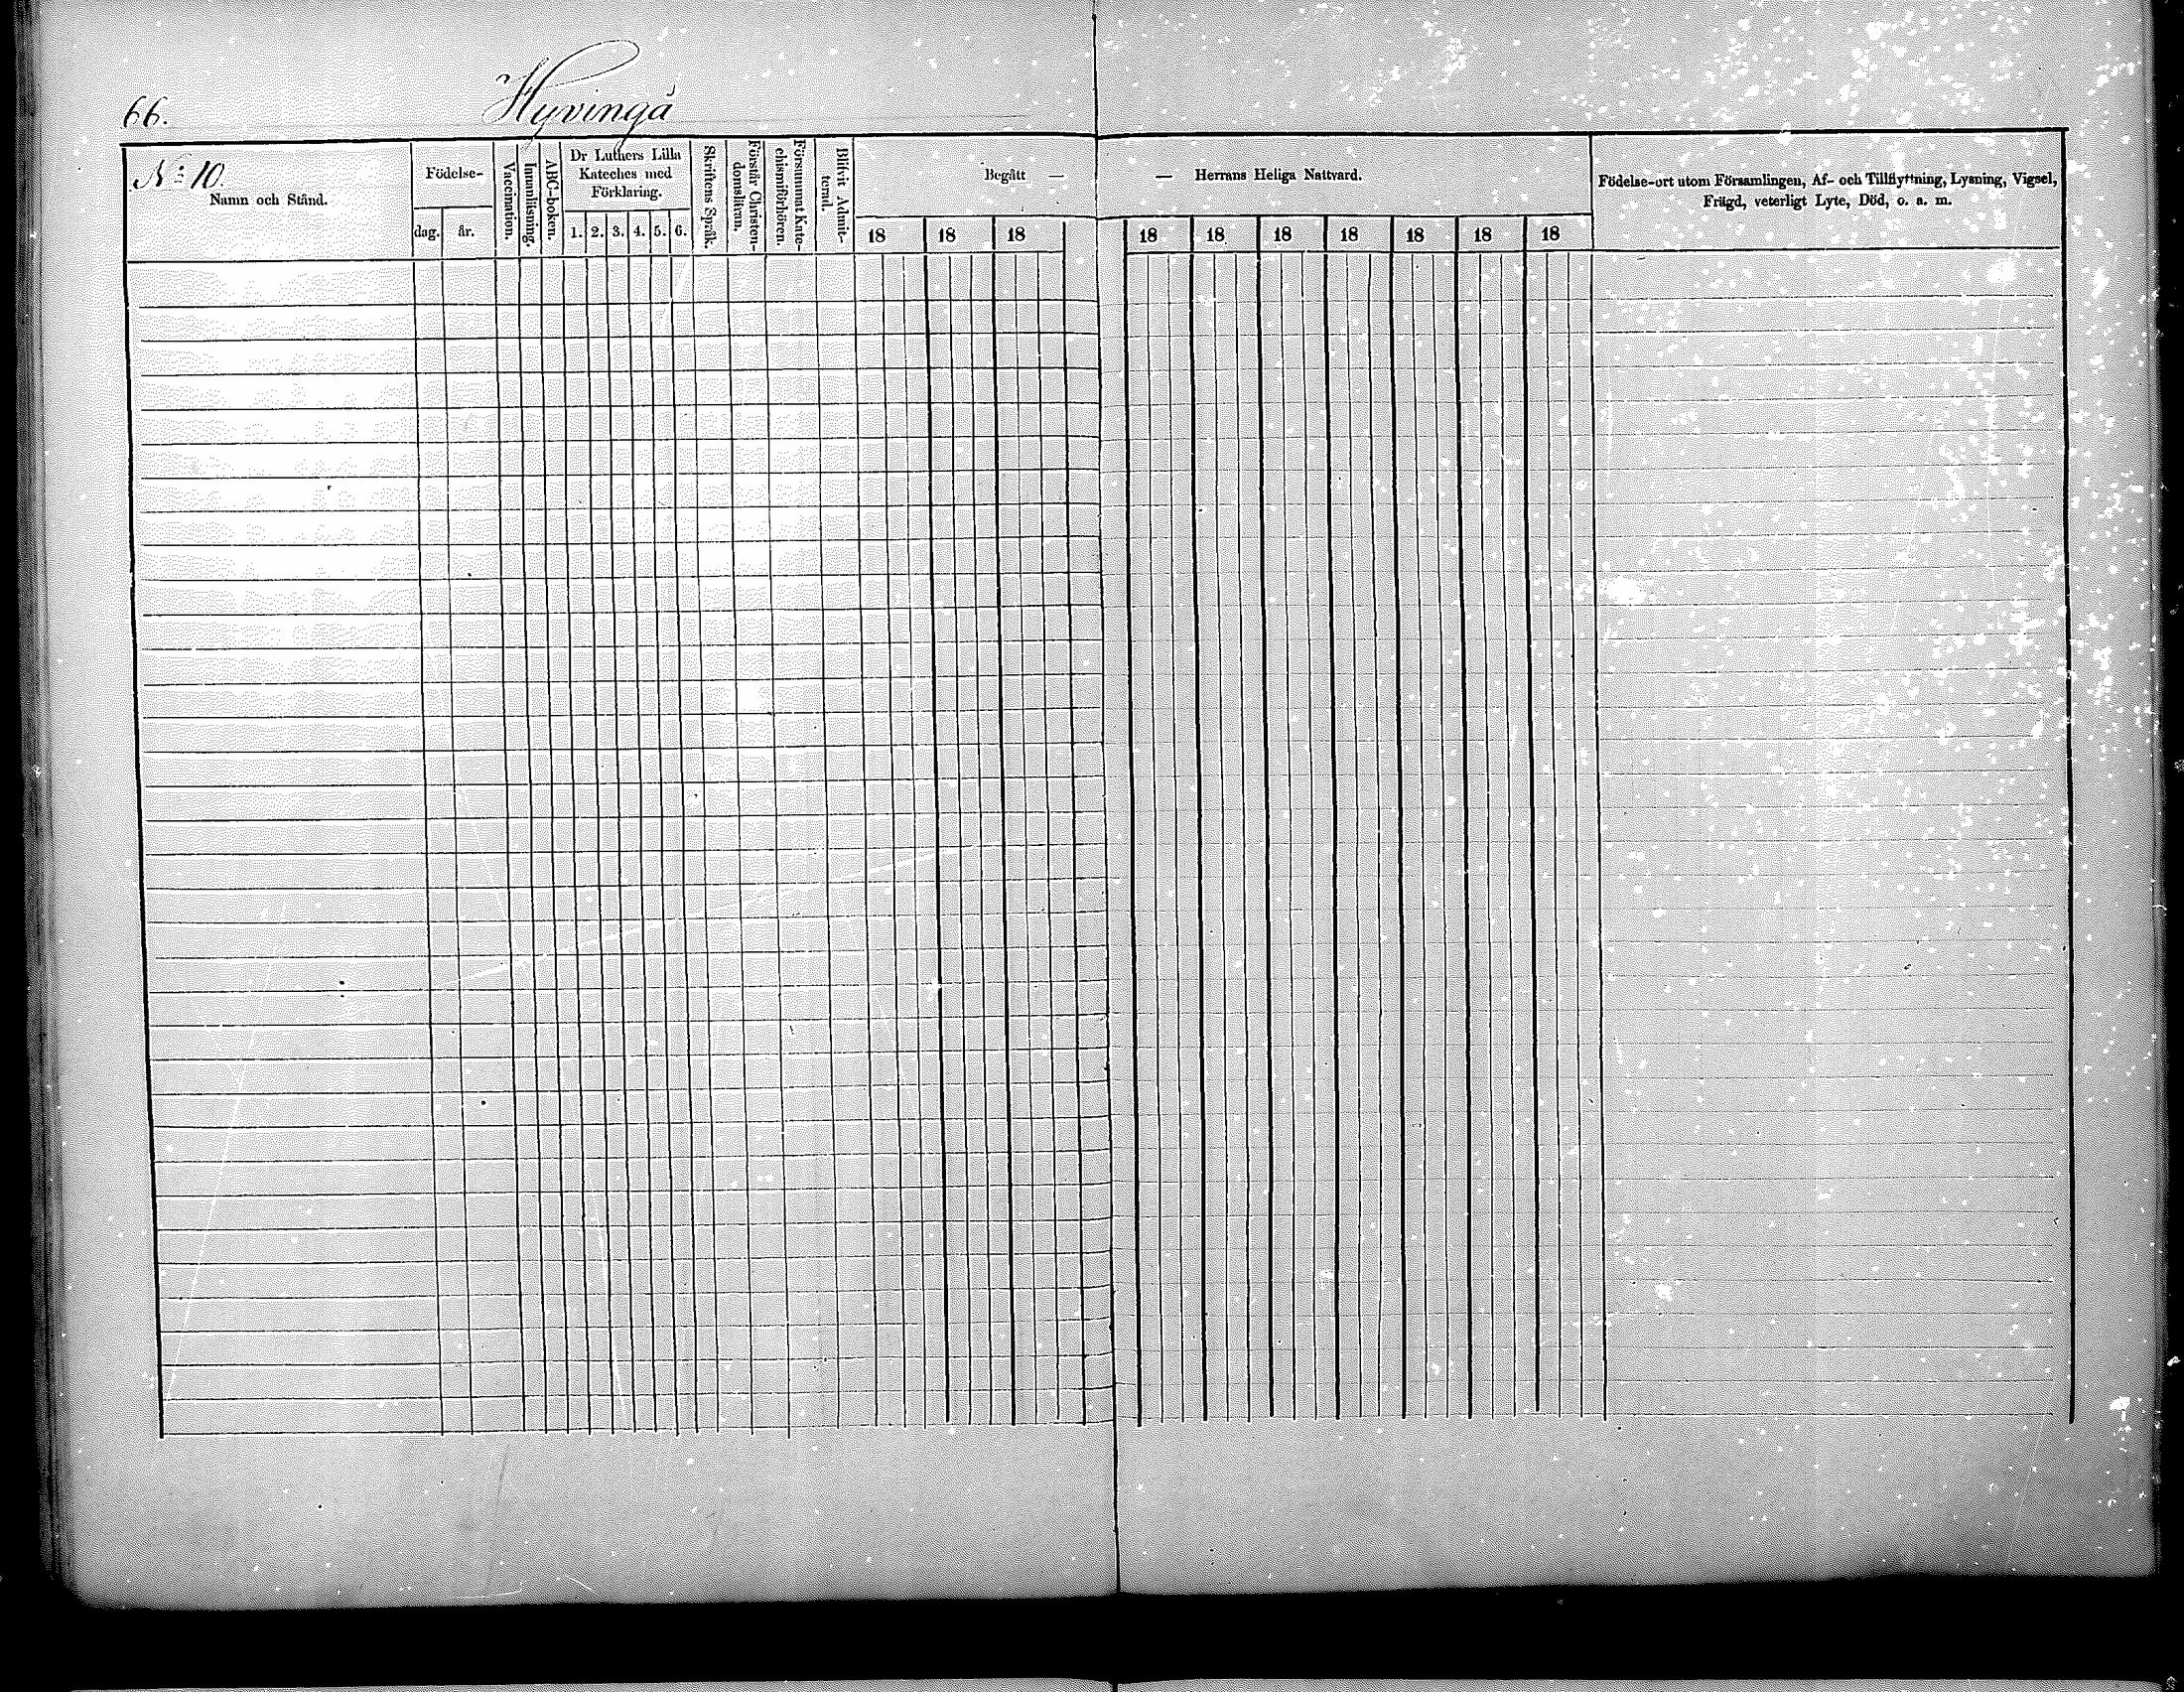 66.
Hyvingå
N:10.
Namn och Stånd.
Födelse-
dag.
år.
Vaccination.
Innanläsning.
ABC-boken.
Dr Luthers Lilla
Kateches med
Förklaring.
1. 2. 3. 4. 5. 6.
Skriftens Språk.
Förstår Christen-
domsläran.
Försummat Kate-
chismiförhören.
Blifvit Admit-
terad.
Begått —
18 18 18
— Herrans Heliga Nattvard.
18 18 18 18 18 18 18
Födelse-ort utom Församlingen, Af- och Tillflyttning, Lysning, Vigsel,
Frägd, veterligt Lyte, Död, o. a. m.